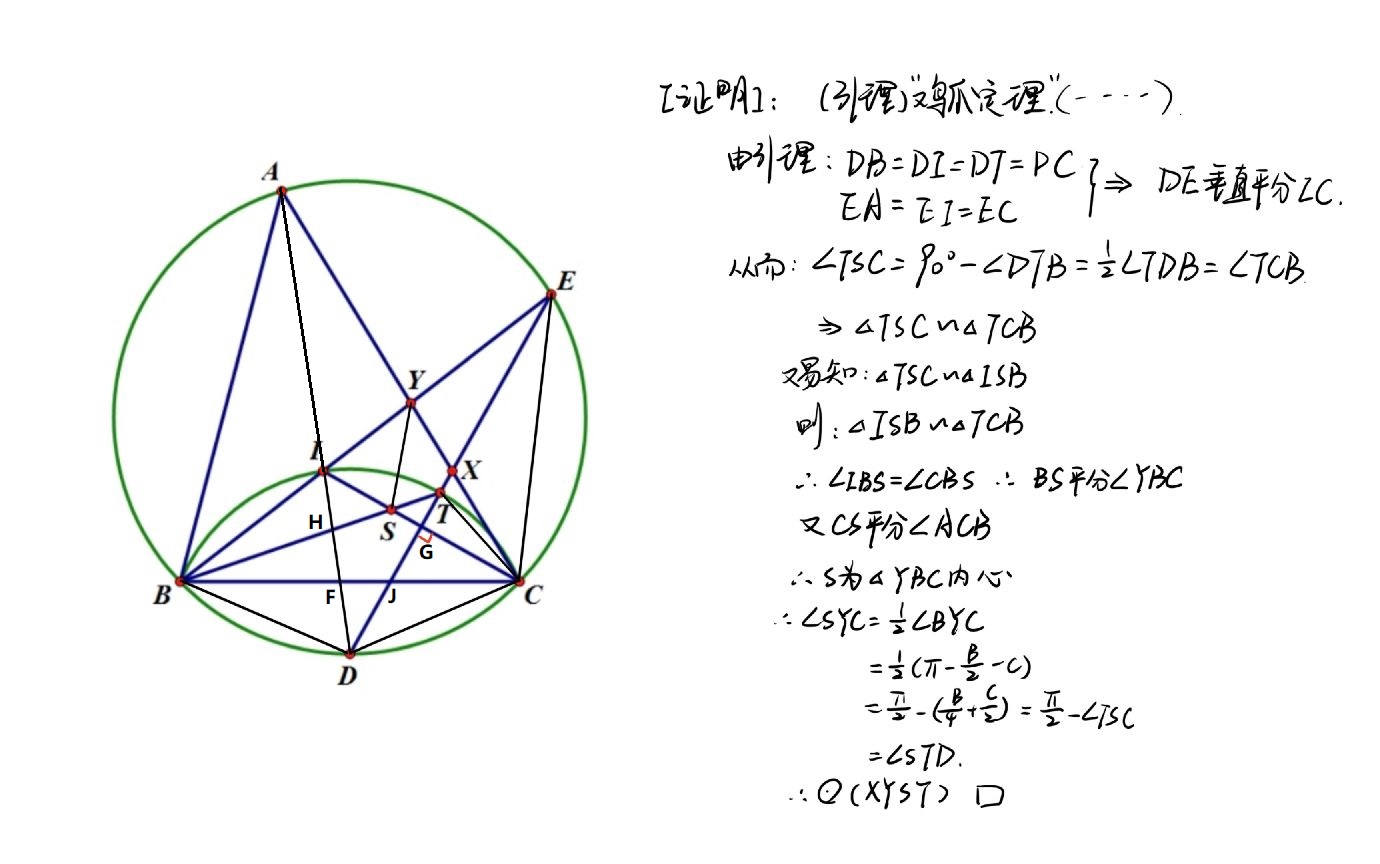 A
E
Y
I
X
H
S
T
G
B
F
J
C
D
[证明]: (引理)"鸡爪定理"(-----).
由引理: DB=DI=DT=DC
EA=EI=EC
} ⇒ DE垂直平分IC.
从而: ∠TSC=90°-∠DTB=½∠TDB=∠TCB
⇒ △TSC∽△TCB
又易知: △TSC∽△ISB
则: △ISB∽△TCB
∴ ∠IBS=∠CBS ∴ BS平分∠YBC
又CS平分∠ACB
∴ S为△YBC内心
∴ ∠SYC=½∠BYC
=½(π-B/2-C)
=π/2-(B/4+C/2)=π/2-∠TSC
=∠STD.
∴ ⊙(XYST) □